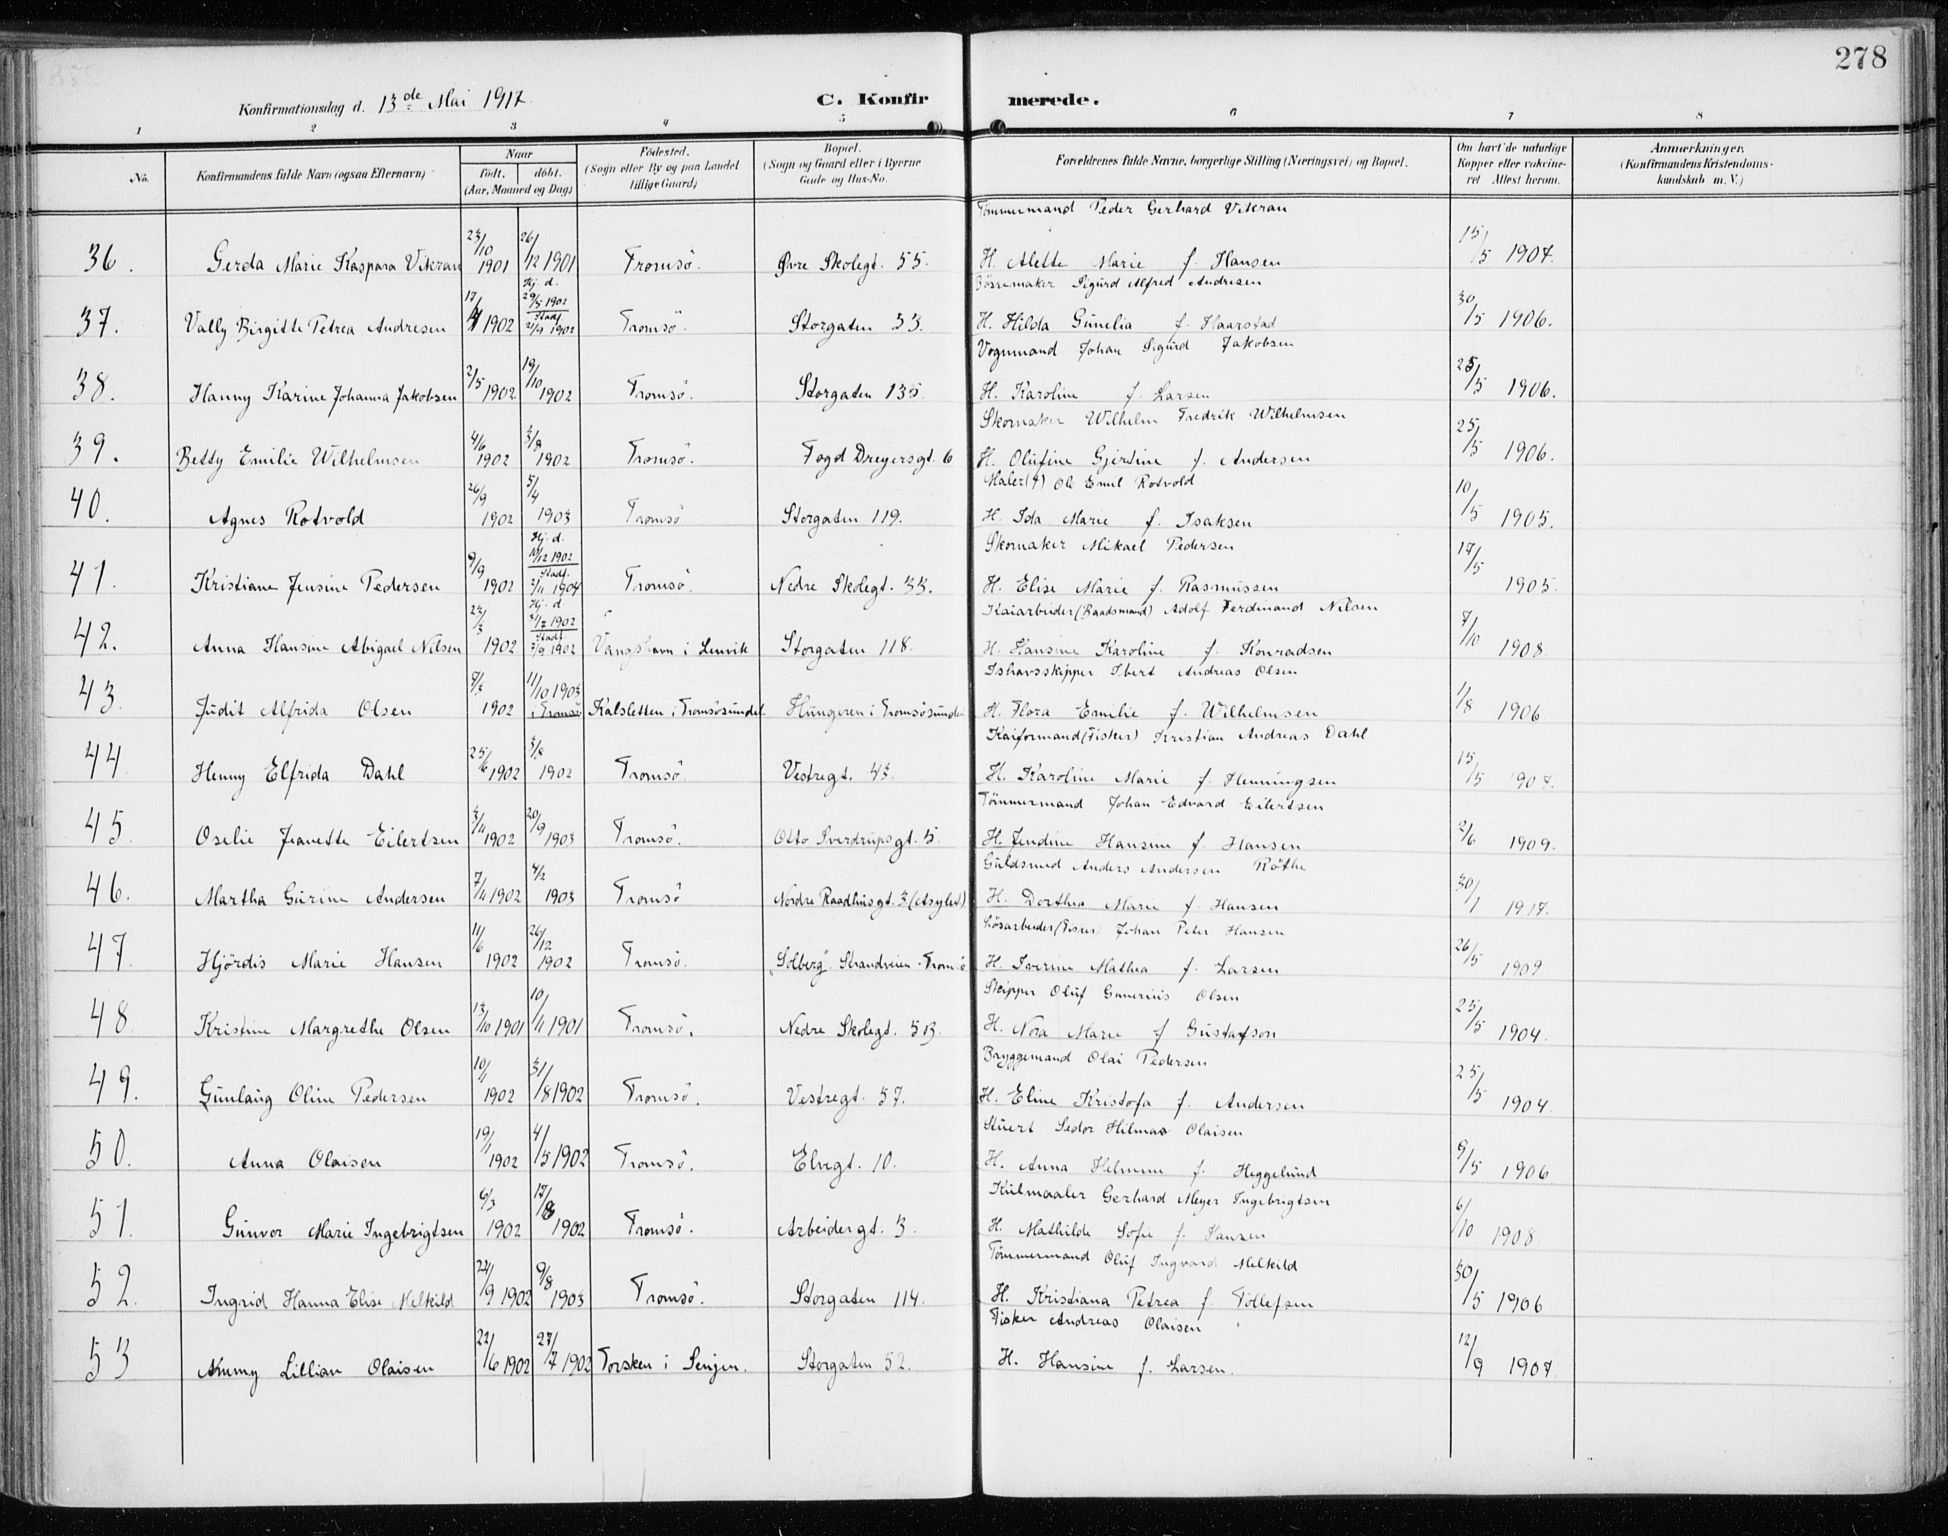 278
Konfirmationsdag d. 13de Mai 1917.
C. Konfirmerede.
1 2 3 4 5 6 7 8
No.
Konfirmandens fulde Navn (ogsaa Efternavn)
Naar
födt. döbt.
(Aar, Maaned og Dag)
Födested.
(Sogn eller By og paa Landet
tillige Gaard)
Bopæl.
(Sogn og Gaard eller i Byerne
Gade og Hus-No.
Forældrenes fulde Navne, borgerlige Stilling (Næringsvei) og Bopæl.
Om havt de naturlige
Kopper eller vakcine-
ret Attest herom.
Anmærkninger.
(Konfirmandens Kristendoms-
kundskab m. V.)
Tömmermand Peder Gerhard Vikran
36. Gerda Marie Kaspara Vikran 23/10 1901 26/12 1901 Tromsö. Övre Skolegt. 55. H. Alette Marie f. Hansen 15/5 1907.
Börsemaker Sigurd Alfred Andresen
37. Vally Birgitte Petrea Andresen 17/4 1902 Hj. d. 29/5 1902 Stadf. 21/9 1902 Tromsö Storgaten 33. H. Hilda Gunelia f. Haarstad 30/5 1906.
Vognmand Johan Sigurd Jakobsen
38. Hanny Karine Johanna Jakobsen 2/5 1902 19/10 1902 Tromsö. Storgaten 135. H. Karoline f. Larsen 25/5 1906.
Skomaker Wilhelm Fredrik Wilhelmsen
39. Betty Emilie Wilhelmsen 4/6 1902 3/8 1902 Tromsö. Fogd Dreyersgt. 6 H. Olufine Gjertine f. Andersen 25/5 1906.
Maler (†) Ole Emil Rotvold
40. Agnes Rotvold 26/9 1902 5/4 1903 Tromsö Storgaten 119. H. Ida Marie f. Isaksen 10/5 1905.
Skomaker Mikael Pedersen
41. Kristiane Jensine Pedersen 9/9 1902 Hj. d. 10/12 1902 Stadf. 2/11 1904 Tromsö. Nedre Skolegt. 33. H. Elise Marie f. Rasmussen 17/5 1905
Kaiarbeider (Baadsmand) Adolf Ferdinand Nilsen
42. Anna Hansine Abigael Nilsen 23/3 1902 Hj. d. /7 1902 Stadf. 7/9 1902 Vangshavn i Lenvik Storgaten 118. H. Hansine Karoline f. Konradsen 7/10 1908
Ishavsskipper Ibert Andreas Olsen
43. Judit Alfrida Olsen 9/3 1902 11/10 1903 i Tromsö Kalsletten i Tromsösundet Hungeren i Tromsösundet H. Flora Emilie f. Wilhelmsen 1/8 1906
Kaiformand (Fisker) Kristian Andreas Dahl
44. Henny Elfrida Dahl 25/6 1902 3/8 1902 Tromsö. Vestregt. 43. H. Karoline Marie f. Henningsen 15/5 1907.
Tömmermand Johan Edvard Eilertsen
45. Oselie Jeanette Eilertsen 3/11 1902 20/9 1903 Tromsö. Otto Sverdrupsgt. 5. H. Jendine Hansine f. Hansen 2/6 1909.
Guldsmed Anders Andersen Röthe
46. Martha Gurine Andersen 7/11 1902 4/2 1903 Tromsö Nordre Raadhusgt. 3 (Asylet) H. Dorthea Marie f. Hansen 30/1 1917.
Lösarbeider (Fisker) Johan Peter Hansen
47. Hjördis Marie Hansen 11/6 1902 26/12 1902 Tromsö. "Solberg" Strandveien - Tromsö H. Iverine Mathea f. Larsen 26/5 1909
Skipper Oluf Gunerius Olsen
48. Kristine Margrethe Olsen 13/10 1901 10/11 1901 Tromsö. Nedre Skolegt. 5B. H. Nora Marie f Gustafson 25/5 1904.
Bryggemand Olai Pedersen
49. Gunlaug Oline Pedersen 10/4 1902 31/8 1902 Tromsö. Vestregt. 57. H. Eline Kristofa f. Andersen 25/5 1904.
Stuert Sedor Hilmar Olaisen
50. Anna Olaisen 19/1 1902 4/5 1902 Tromsö. Elvegt. 10. H. Anna Helmine f. Heggelund 9/5 1906
Kulmaaler Gerhard Meyer Ingebrigtsen
51. Gunvor Marie Ingebrigtsen 6/3 1902 17/8 1902 Tromsö. Arbeidergt. 3. H. Mathilde Sofie f. Hansen 6/10 1908.
Tömmermand Oluf Ingvard Melkild
52. Ingrid Hanna Elise Melkild 22/9 1902 9/8 1903 Tromsö. Storgaten 114. H. Kristiana Petrea f. Tollefsen 30/5 1906
Fisker Andreas Olaisen
53 Ammy Lillian Olaisen 22/6 1902 27/7 1902 Torsken i Senjen. Storgaten 52. H. Hansine f. Larsen. 12/9 1907.